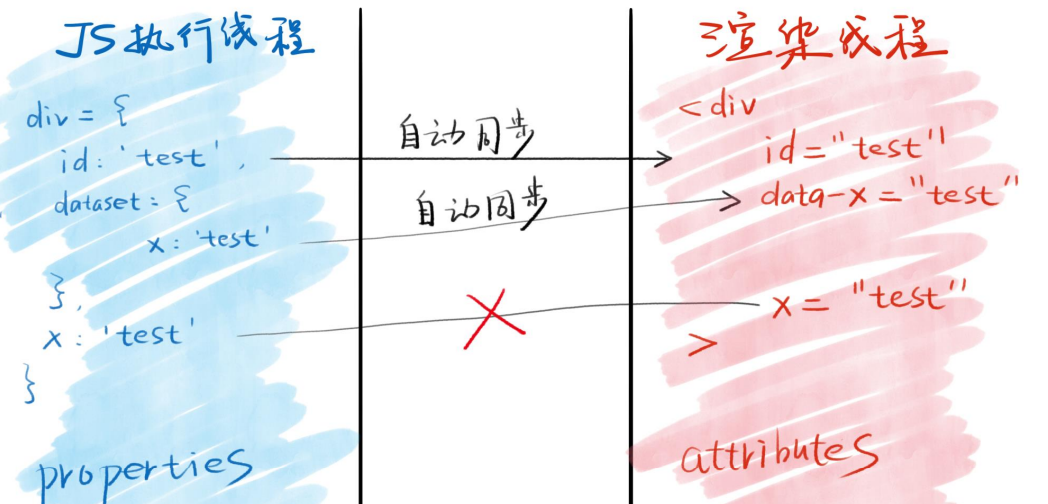 JS执行线程
div = {
id: 'test',
dataset: {
x: 'test'
},
x: 'test'
}
properties
自动同步
自动同步
渲染线程
<div
id="test"
data-x="test"
x="test"
>
attributes